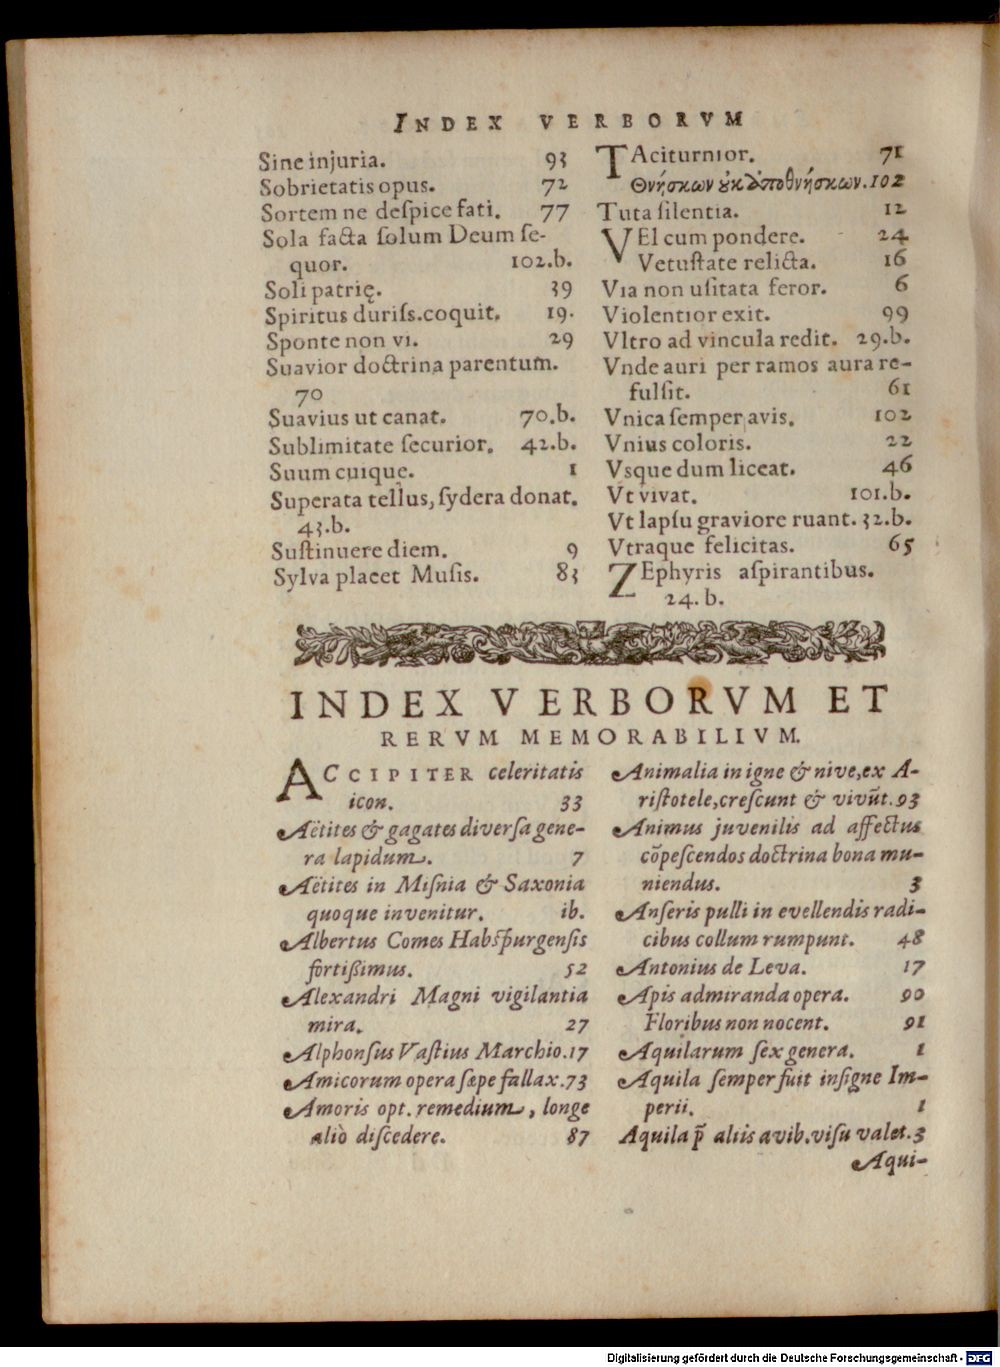 INDEX VERBORVM
Sine injuria. 93
Sobrietatis opus. 72
Sortem ne deſpice fati. 77
Sola facta ſolum Deum ſe-
quor. 102.b.
Soli patrię. 39
Spiritus duriſſ.coquit. 19.
Sponte non vi. 29
Suavior doctrina parentum.
70
Suavius ut canat. 70.b.
Sublimitate ſecurior. 42.b.
Suum cuique. 1
Superata tellus, ſydera donat.
43.b.
Suſtinuere diem. 9
Sylva placet Muſis. 83
TAciturnior. 71
Θνήσκων ȣκ ἀποθνήσκων. 102
Tuta ſilentia. 12
VEl cum pondere. 24
Vetuſtate relicta. 16
Via non uſitata feror. 6
Violentior exit. 99
Vltro ad vincula redit. 29.b.
Vnde auri per ramos aura re-
fulſit. 61
Vnica ſemper avis. 102
Vnius coloris. 22
Vsque dum liceat. 46
Vt vivat. 101.b.
Vt lapſu graviore ruant. 32.b.
Vtraque felicitas. 65
ZEphyris aſpirantibus.
24.b.
INDEX VERBORVM ET
RERVM MEMORABILIVM.
ACCIPITER celeritatis
icon. 33
Aëtites & gagates diverſa gene-
ra lapidum. 7
Aëtites in Miſnia & Saxonia
quoque invenitur. ib.
Albertus Comes Habſpurgenſis
fortißimus. 52
Alexandri Magni vigilantia
mira. 27
Alphonſus Vaſtius Marchio. 17
Amicorum opera ſæpe fallax. 73
Amoris opt. remedium, longe
aliò diſcedere. 87
Animalia in igne & nive, ex A-
riſtotele, creſcunt & vivūt. 93
Animus juvenilis ad affectus
cōpeſcendos doctrina bona mu-
niendus. 3
Anſeris pulli in evellendis radi-
cibus collum rumpunt. 48
Antonius de Leva. 17
Apis admiranda opera. 90
Floribus non nocent. 91
Aquilarum ſex genera. 1
Aquila ſemper fuit inſigne Im-
perii. 1
Aquila p̄ aliis avib. viſu valet. 3
Aqui-
Digitalisierung gefördert durch die Deutsche Forschungsgemeinschaft - DFG